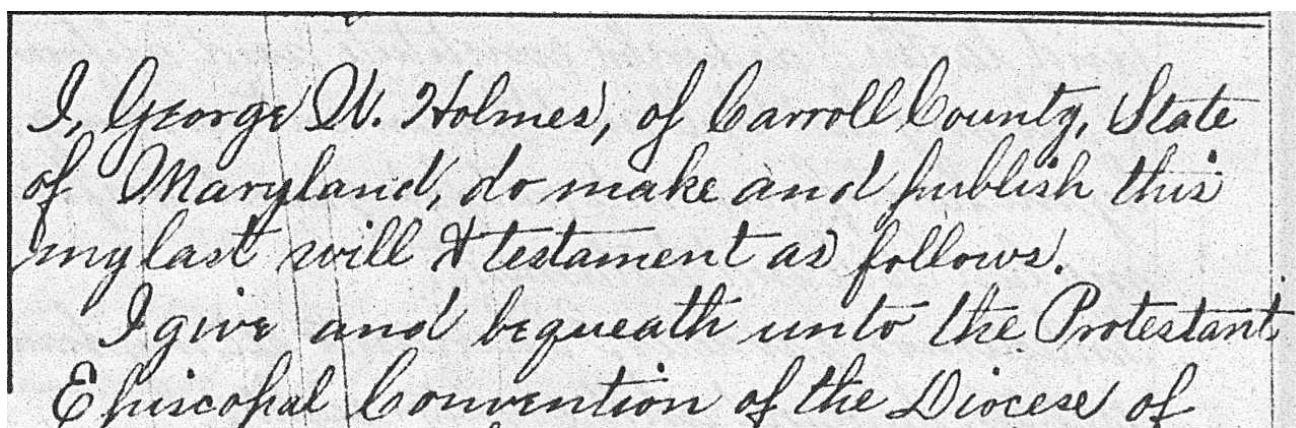 I, George W. Holmes, of Carroll County, State
of Maryland, do make and publish this
my last will & testament as follows.
I give and bequeath unto the Protestant
Episcopal Convention of the Diocese of